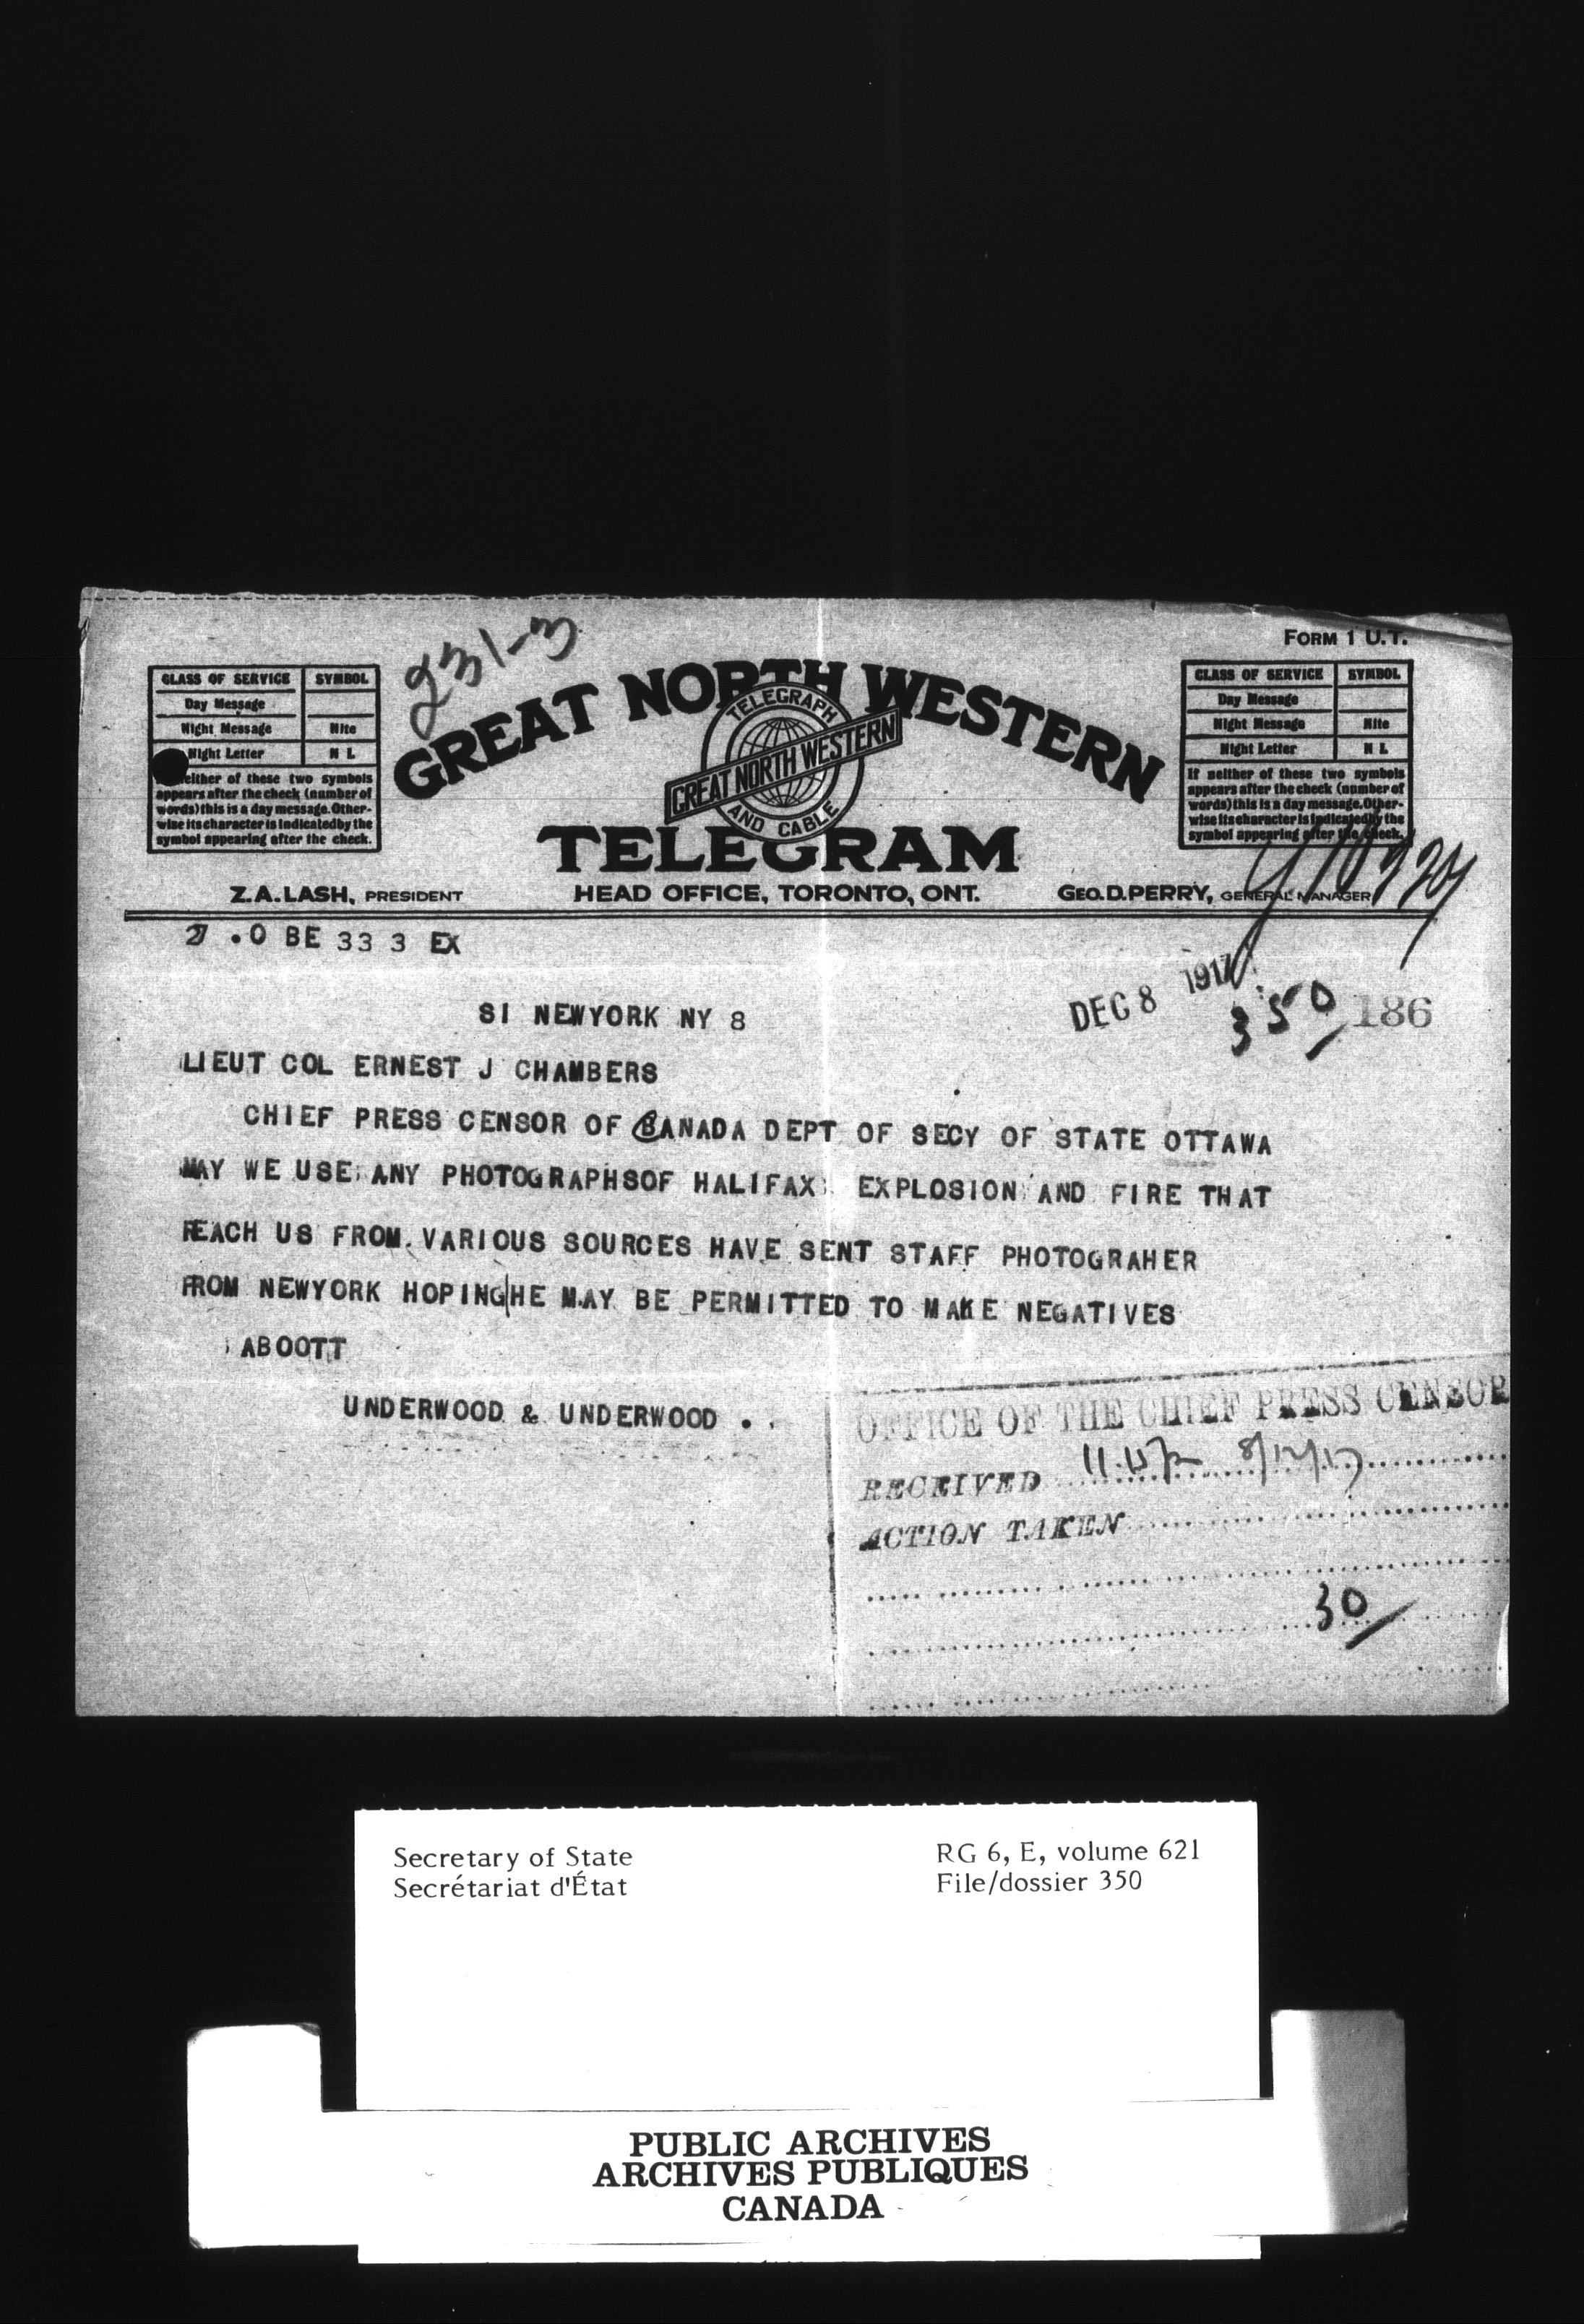 231-3
FORM 1 U.T.
CLASS OF SERVICE SYMBOL
Day Message
Night Message Nite
Night Letter N L
either of these two symbols
appears after the check (number of
words) this is a day message. Other-
wise its character is indicated by the
symbol appearing after the check.
GREAT NORTH WESTERN
TELEGRAPH
GREAT NORTH WESTERN
AND CABLE
TELEGRAM
CLASS OF SERVICE SYMBOL
Day Message
Night Message Nite
Night Letter N L
If neither of these two symbols
appears after the check (number of
words) this is a day message. Other-
wise its character is indicated by the
symbol appearing after the check.
Z.A.LASH, PRESIDENT HEAD OFFICE, TORONTO, ONT. GEO.D.PERRY, GENERAL MANAGER
.O BE 33 3 EX
DEC 8 1917
SI NEWYORK NY 8
350 186
LIEUT COL ERNEST J CHAMBERS
CHIEF PRESS CENSOR OF CANADA DEPT OF SECY OF STATE OTTAWA
MAY WE USE ANY PHOTOGRAPHSOF HALIFAX EXPLOSION AND FIRE THAT
REACH US FROM VARIOUS SOURCES HAVE SENT STAFF PHOTOGRAHER
FROM NEWYORK HOPING|HE MAY BE PERMITTED TO MAKE NEGATIVES
ABOOTT
UNDERWOOD & UNDERWOOD . .
OFFICE OF THE CHIEF PRESS CENSOR
RECEIVED 8/12/17
ACTION TAKEN
30/
Secretary of State RG 6, E, volume 621
Secrétariat d'État File/dossier 350
PUBLIC ARCHIVES
ARCHIVES PUBLIQUES
CANADA